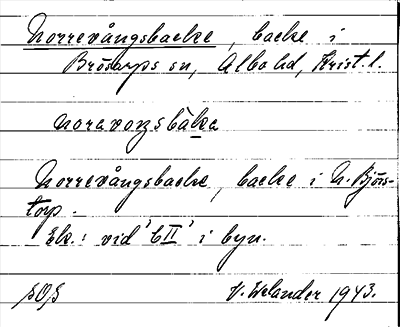 Norrevångsbacke, backe i
Brösarps sn, Albo hd, Krist. l.
noravoŋsbàka
Norrevångsbacke, backe i N. Björs-
torp.
Ek.: vid 'bII' i byn.
SOS
V. Welander 1943.